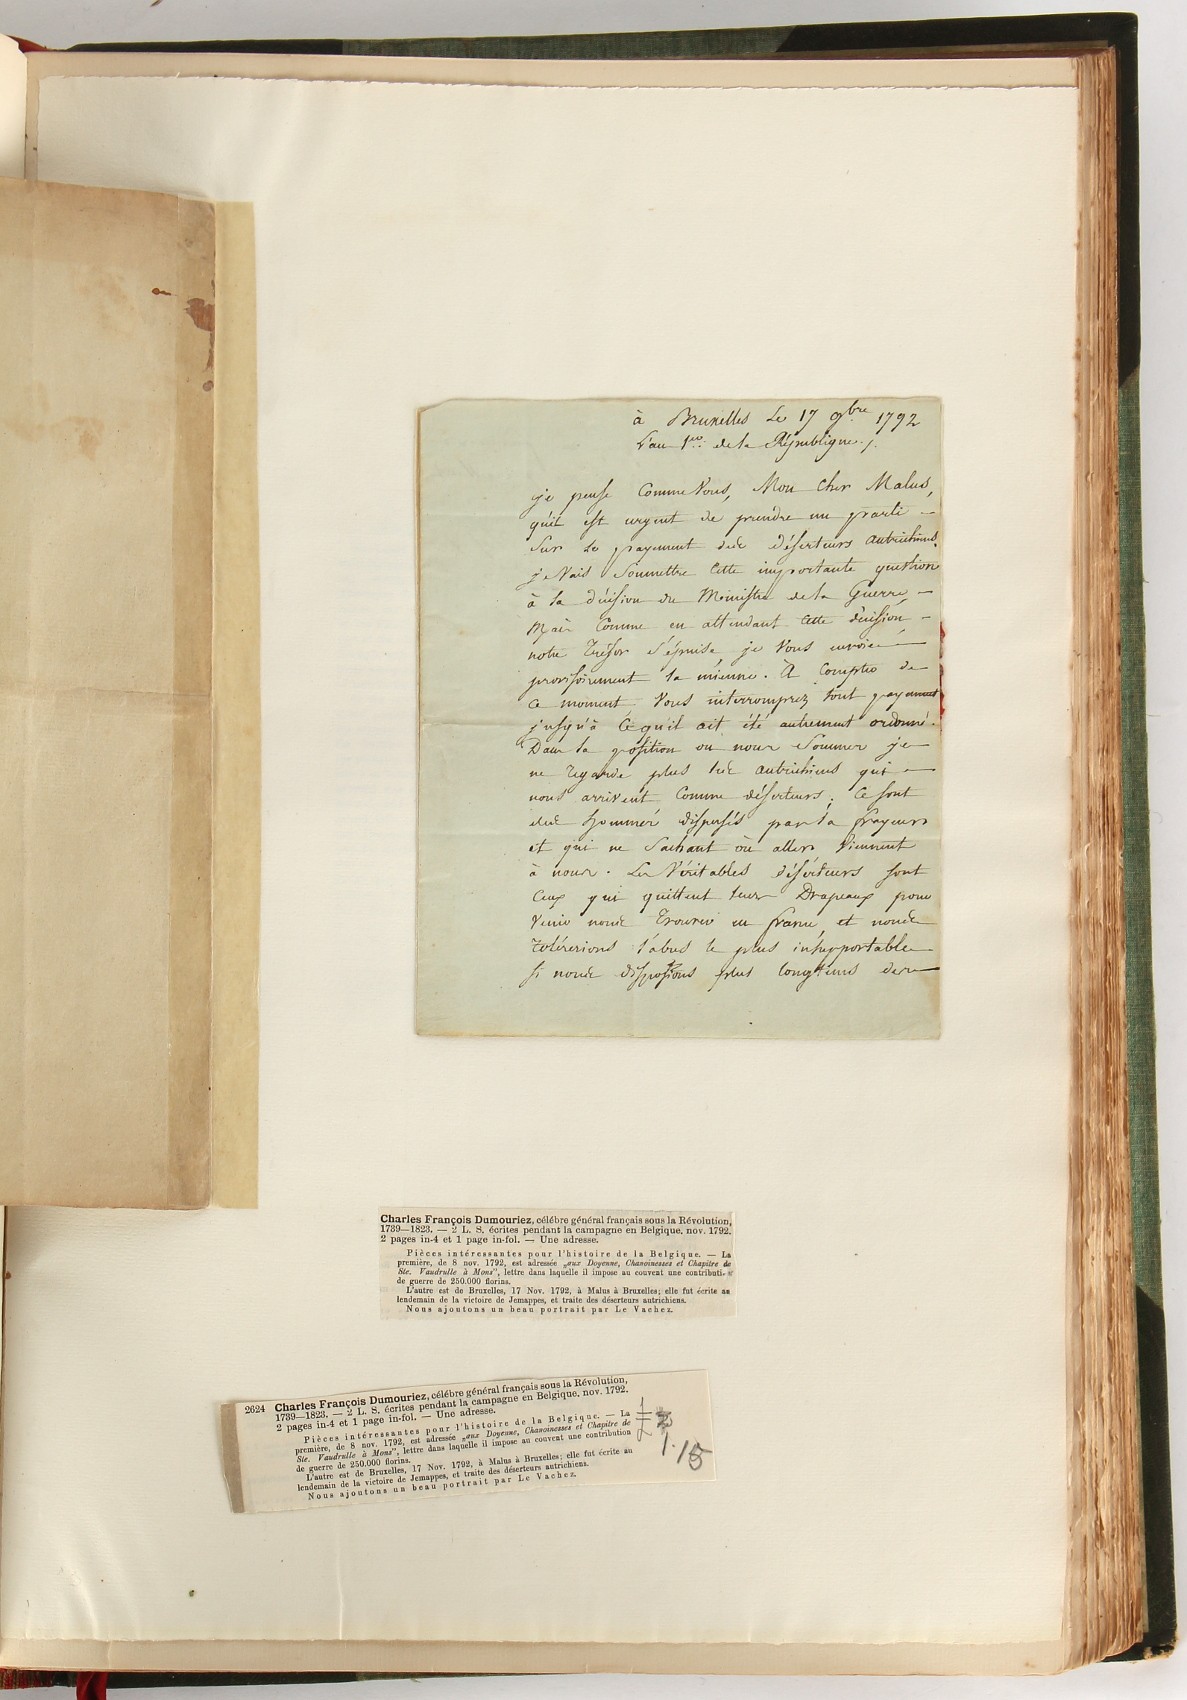 à Bruxelles Le 17 9bre 1792
L'an 1er de la République ./.
je pense Comme Vous, Mon cher Malus,
qu'il est urgent de prendre un parti
Sur Le payement des déserteurs autrichiens.
je Vais Soumettre Cette importante question
à la décision du Ministre de la Guerre
Mais Comme en attendant Cette décision
notre Trésor S'épuise je Vous envoie
provisoirement la mienne. A Compter de
ce moment Vous interromprez tout payement
jusqu'à Ce qu'il ait été autrement ordonné.
Dans la position ou nous Sommes je
ne regarde plus les autrichiens qui
nous arrivent Comme déserteurs. Ce sont
des hommes dispersés par la frayeur
et qui ne Sachant où aller Viennent
à nous. Les Véritables déserteurs sont
Ceux qui quittent leurs Drapeaux pour
Venir nous Trouver en france, et nous
tolérerions l'abus le plus insupportable
si nous disposions plus longtems des
Charles François Dumouriez, célébre général français sous la Révolution,
1739—1823. — 2 L. S. écrites pendant la campagne en Belgique. nov. 1792.
2 pages in-4 et 1 page in-fol. — Une adresse.
Pièces intéressantes pour l'histoire de la Belgique. — La
première, de 8 nov. 1792, est adressée „aux Doyenne, Chanoinesses et Chapitre de
Ste. Vaudrulle à Mons", lettre dans laquelle il impose au couvent une contributi
de guerre de 250.000 florins.
L'autre est de Bruxelles, 17 Nov. 1792, à Malus à Bruxelles; elle fut écrite au
lendemain de la victoire de Jemappes, et traite des déserteurs autrichiens.
Nous ajoutons un beau portrait par Le Vachez.
2624 Charles François Dumouriez, célébre général français sous la Révolution,
1739—1823. — 2 L. S. écrites pendant la campagne en Belgique. nov. 1792.
2 pages in-4 et 1 page in-fol. — Une adresse.
Pièces intéressantes pour l'histoire de la Belgique. — La
première, de 8 nov. 1792, est adressée „aux Doyenne, Chanoinesses et Chapitre de
Ste. Vaudrulle à Mons", lettre dans laquelle il impose au couvent une contribution
de guerre de 250.000 florins.
L'autre est de Bruxelles, 17 Nov. 1792, à Malus à Bruxelles; elle fut écrite au
lendemain de la victoire de Jemappes, et traite des déserteurs autrichiens.
Nous ajoutons un beau portrait par Le Vachez.
1.15